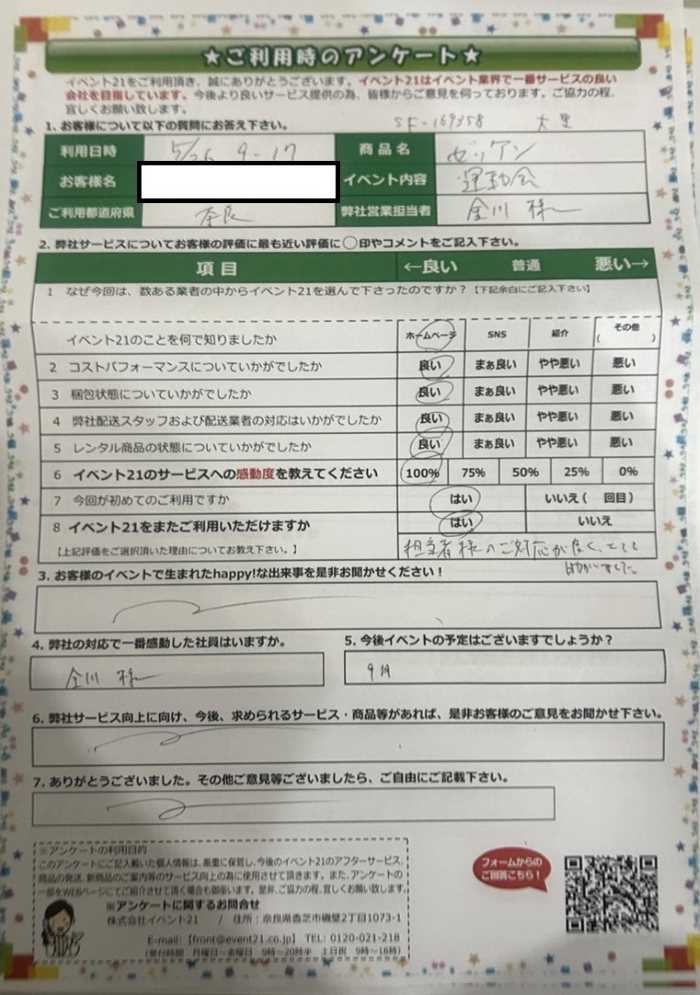 ★ご利用時のアンケート★
イベント21をご利用頂き、誠にありがとうございます。イベント21はイベント業界で一番サービスの良い
会社を目指しています。今後より良いサービス提供の為、皆様からご意見を伺っております。ご協力の程、
宜しくお願い致します。
1. お客様について以下の質問にお答え下さい。
SF-169358
利用日時 5/26 9-17 商品名 ゼッケン
お客様名 イベント内容 運動会
ご利用都道府県 奈良 弊社営業担当者 金川 様
2. 弊社サービスについてお客様の評価に最も近い評価に○印やコメントをご記入下さい。
項目 ←良い 普通 悪い→
1 なぜ今回は、数ある業者の中からイベント21を選んで下さったのですか？【下記余白にご記入下さい】
イベント21のことを何で知りましたか ホームページ SNS 紹介 その他 ( )
2 コストパフォーマンスについていかがでしたか 良い まぁ良い やや悪い 悪い
3 梱包状態についていかがでしたか 良い まぁ良い やや悪い 悪い
4 弊社配送スタッフおよび配送業者の対応はいかがでしたか 良い まぁ良い やや悪い 悪い
5 レンタル商品の状態についていかがでしたか 良い まぁ良い やや悪い 悪い
6 イベント21のサービスへの感動度を教えてください 100% 75% 50% 25% 0%
7 今回が初めてのご利用ですか はい いいえ ( 回目)
8 イベント21をまたご利用いただけますか はい いいえ
【上記評価をご選択頂いた理由についてお教え下さい。】 担当者様のご対応が良く、とても
助かりました。
3. お客様のイベントで生まれたhappy!な出来事を是非お聞かせください！
4. 弊社の対応で一番感動した社員はいますか。 5. 今後イベントの予定はございますでしょうか？
金川 様 9月
6. 弊社サービス向上に向け、今後、求められるサービス・商品等があれば、是非お客様のご意見をお聞かせ下さい。
7. ありがとうございました。その他ご意見等ございましたら、ご自由にご記載下さい。
※アンケートの利用目的
このアンケートにご記入頂いた個人情報は、厳重に保管し、今後のイベント21のアフターサービス、
商品の発送、新商品のご案内等のサービス向上の為に使用させて頂きます。また、アンケートの
一部をWEBページにてご紹介させて頂く場合も御座います。是非、ご協力の程、宜しくお願い致します。
※アンケートに関するお問合せ
株式会社イベント21 / 住所：奈良県香芝市磯壁2丁目1073-1
E-mail:【front@event21.co.jp】 TEL: 0120-021-218
(受付時間 月曜日～金曜日 9時～20時半 土日祝 9時～16時)
フォームからの
ご回答こちら！